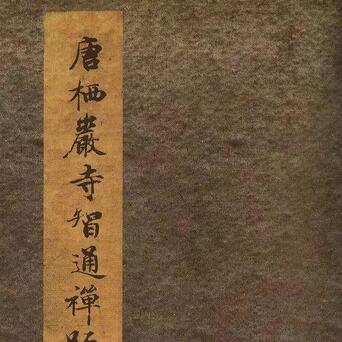 唐栖巖寺智通禪